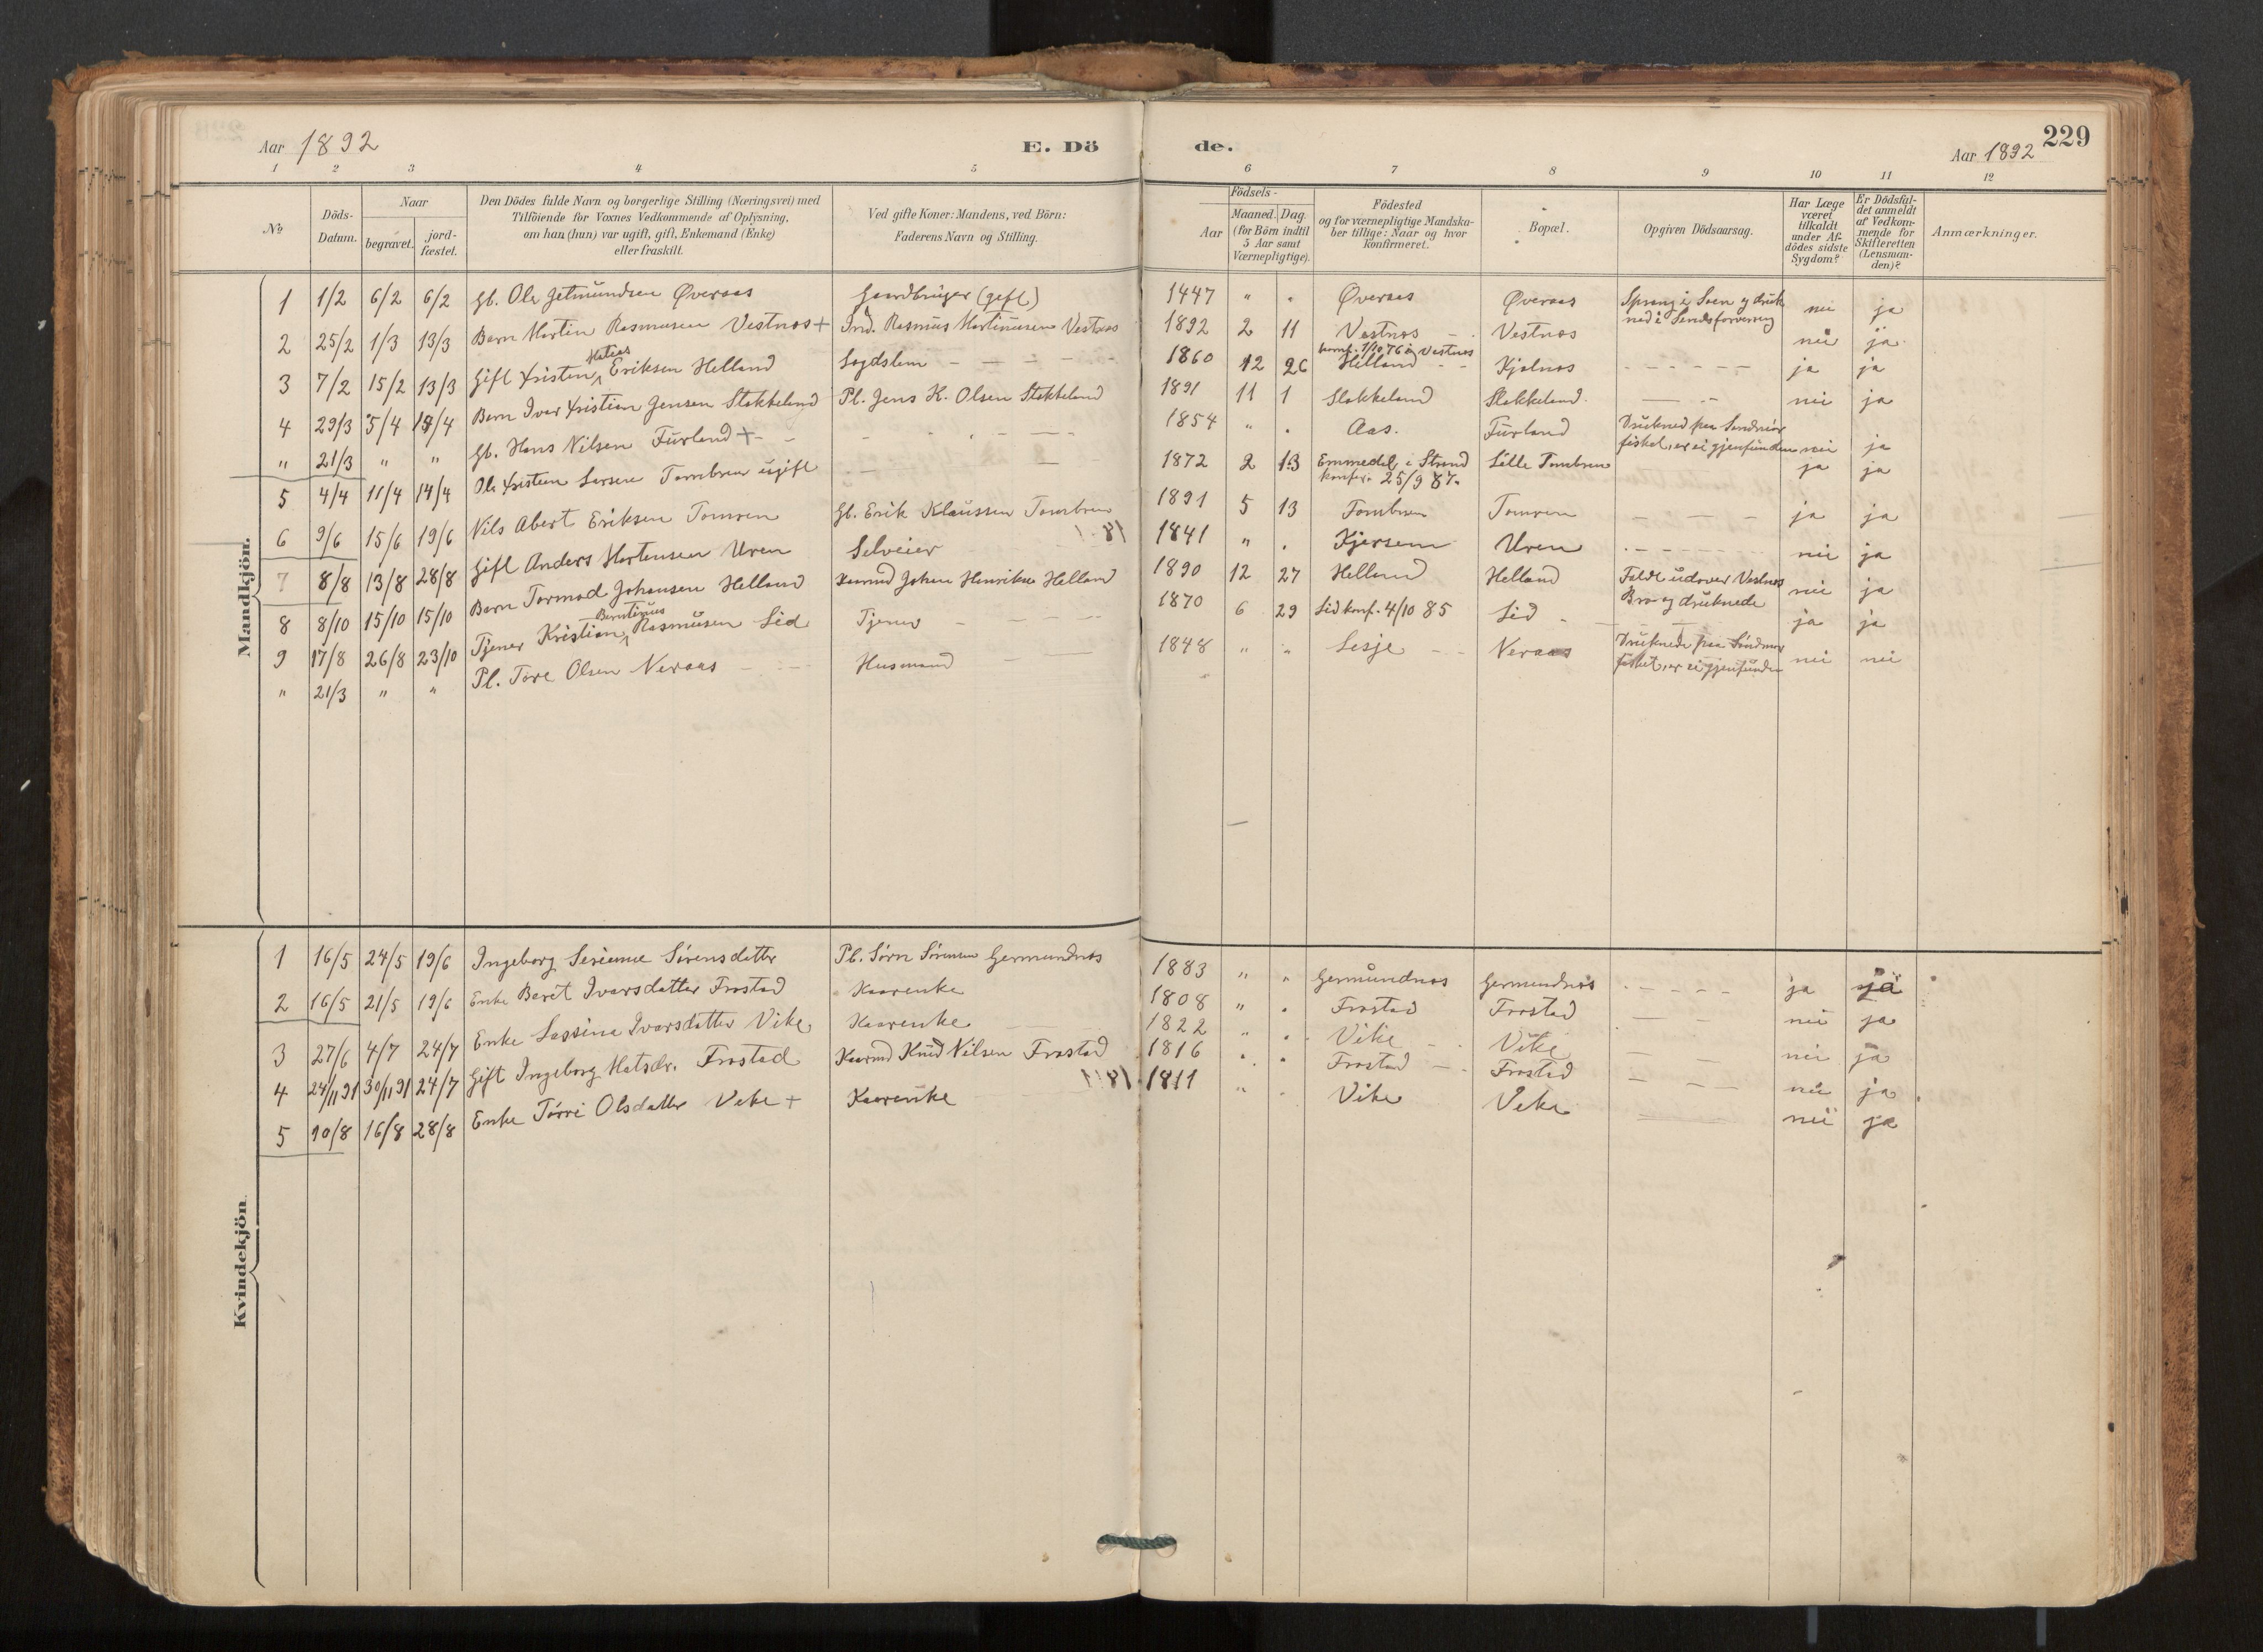 Aar 1892
E. Döde.
Aar 1892
229
1 2 3 4 5 6 7 8 9 10 11 12
No
Döds-Datum.
Naar
begravet.
jord-fæstet.
Den Dödes fulde Navn og borgerlige Stilling (Næringsvei) med
Tilföiende for Voxnes Vedkommende af Oplysning,
om han (hun) var ugift, gift, Enkemand (Enke)
eller fraskilt.
Ved gifte Koner: Mandens, ved Börn:
Faderens Navn og Stilling.
Födsels-
Aar
Maaned. Dag.
(for Börn indtil
5 Aar samt
Værnepligtige).
Födested
og for værnepligtige Mandska-
ber tillige: Naar og hvor
Konfirmeret.
Bopæl.
Opgiven Dödsaarsag.
Har Læge
været
tilkaldt
under Af-
dödes sidste
Sygdom?
Er Dödsfal-
det anmeldt
af Vedkom-
mende for
Skifteretten
(Lensman-
den)?
Anmærkninger.
Mandkjön.
1 1/2 6/2 6/2 Gb. Ole Jetmundsen Øveraas Gaardbruger (gift) 1447 " " Øveraas Øveraas Sprang i Søen og druk
nede i Sindsforvirring nei ja
2 25/2 1/3 13/3 Barn Martin Rasmusen Vestnes + Ind. Rasmus Martinusen Vestnes 1892 2 11 Vestnes Vestnes nei ja
3 7/2 15/2 13/3 Gift Kristen Matias Eriksen Helland 1860 12 26 konf. 1/10 76 i Vestnes
Helland Kjelnes - - - ja ja
4 29/3 5/4 18/4 Barn Ivar Kristian Jensen Stokkeland Pl. Jens K. Olsen Stokkeland 1891 11 1 Stokkeland Stokkeland. nei ja
" 21/3 " " Gb. Hans Nilsen Furland + 1854 " " Aas. Furland Druknede paa Søndmør
fisket, er ei gjenfunden nei ja
5 4/4 11/4 14/4 Ole Kristian Larsen Tombren ugift 1872 2 13 Emmedal i Strand
konfir. 25/9 87. Lille Tombren ja ja
6 9/6 15/6 19/6 Nils Abert Eriksen Tomren Gb. Erik Klaussen Tombren 1891 5 13 Tombren Tomren ja ja
7 8/8 13/8 28/8 Gift Anders Mortensen Uren Selveier 1841 " " Kjersem Uren nei ja
8 8/10 15/10 15/10 Barn Tormod Johansen Helland Kaarmd Johan Henriksen Helland 1890 12 27 Helland Helland Faldt udover Vestnes
Bro og druknede nei ja
9 17/8 26/8 23/10 Tjener Kristian Berntinus Rasmusen Lid Tjener 1870 6 29 Lid konf. 4/10 85 Lid ja ja
" 21/3 " " Pl. Tore Olsen Neraas Husmand 1848 " " Lesje Neraas Druknede paa Søndmør
fisket, er ei gjenfunden nei nei
Kvindekjön.
1 16/5 24/5 19/6 Ingeborg Serianne Sörensdatter Pl. Sörn Sörensen Germundnes 1883 " " Germundnes Germundnes ja ja
2 16/5 21/5 19/6 Enke Beret Ivarsdatter Frostad Kaarenke 1808 " " Frostad Frostad nei ja
3 27/6 4/7 24/7 Enke Lassina Ivarsdatter Vike Kaarenke 1822 " " Vike Vike nei ja
4 24/11 91 30/11 91 24/7 Gift Ingeborg Matsdr. Frostad Kaarmd Knud Nilsen Frostad 1816 " " Frostad Frostad nei ja
5 10/8 16/8 28/8 Enke Törri Olsdatter Vike + Kaarenke 1811 " " Vike Vike nei ja